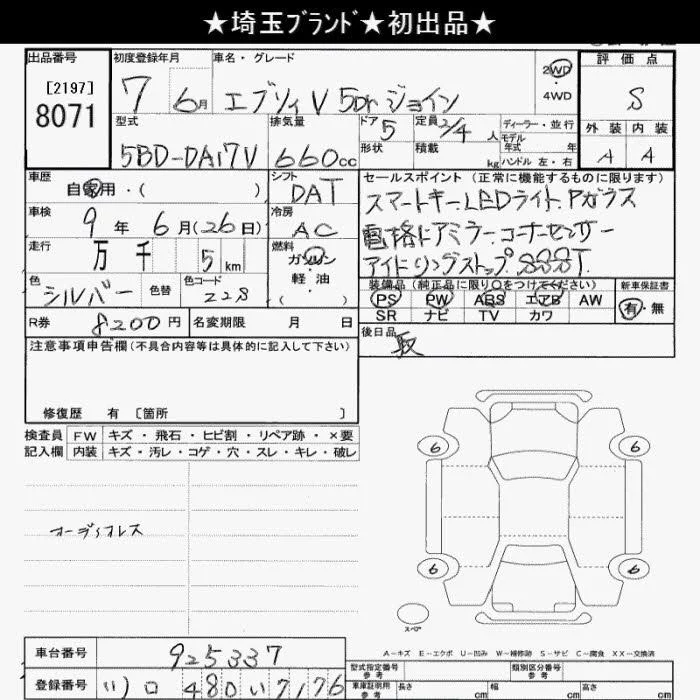 ★埼玉ﾌﾞﾗﾝﾄﾞ★初出品★
出品番号 初度登録年月 車名・グレード 2WD 評価点
[2197]
8071 7 6月 エブリィV 5Dr ジョイン 4WD S
型式 排気量 ドア 定員 ディーラー・並行 外装 内装
5BD-DA17V 660cc 5 2/4人 モデル年式 年 A A
形状 積載 kg ハンドル 左・右
車歴 シフト セールスポイント (正常に機能するものに限ります)
自家用・( ) DAT スマートキー LEDライト Pガラス
車検 冷房
9年 6月(26日) AC 電格ドアミラー コーナーセンサー
走行 燃料
万 千 5km ガソリン アイドリングストップ
色 色替 色コード 軽油
シルバー Z2S ( )
装備品 (純正品に限り○をつけてください) 新車保証書
PS PW ABS エアB AW 有・無
SR ナビ TV カワ
R券 8200円 名変期限 月 日
後日品 取
注意事項申告欄(不具合内容等は具体的に記入して下さい)
修復歴 有 〔箇所 〕
検査員 FW キズ・飛石・ヒビ割・リペア跡・×要
記入欄 内装 キズ・汚レ・コゲ・穴・スレ・キレ・破レ
6 6
オーディオレス
6 6
スペア
A－キズ E－エクボ U－凹み W－補修跡 S－サビ C－腐食 XX－交換済
車台番号 925337
型式指定番号 参考 類別区分番号 参考
登録番号 480 い 7176
車庫証明用 参考 長さ cm 幅 cm 高さ cm